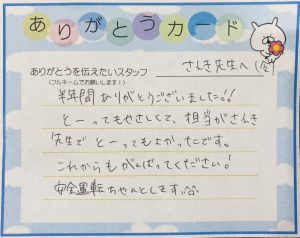 ありがとうカード
ありがとうを伝えたいスタッフ
(フルネームでお願いします!)
さんき先生へ
半年間ありがとうございました!!
とーってもやさしくて、担当がさんき
先生でとーってもよかったです。
これからもがんばってください!
安全運転ちゃんとします